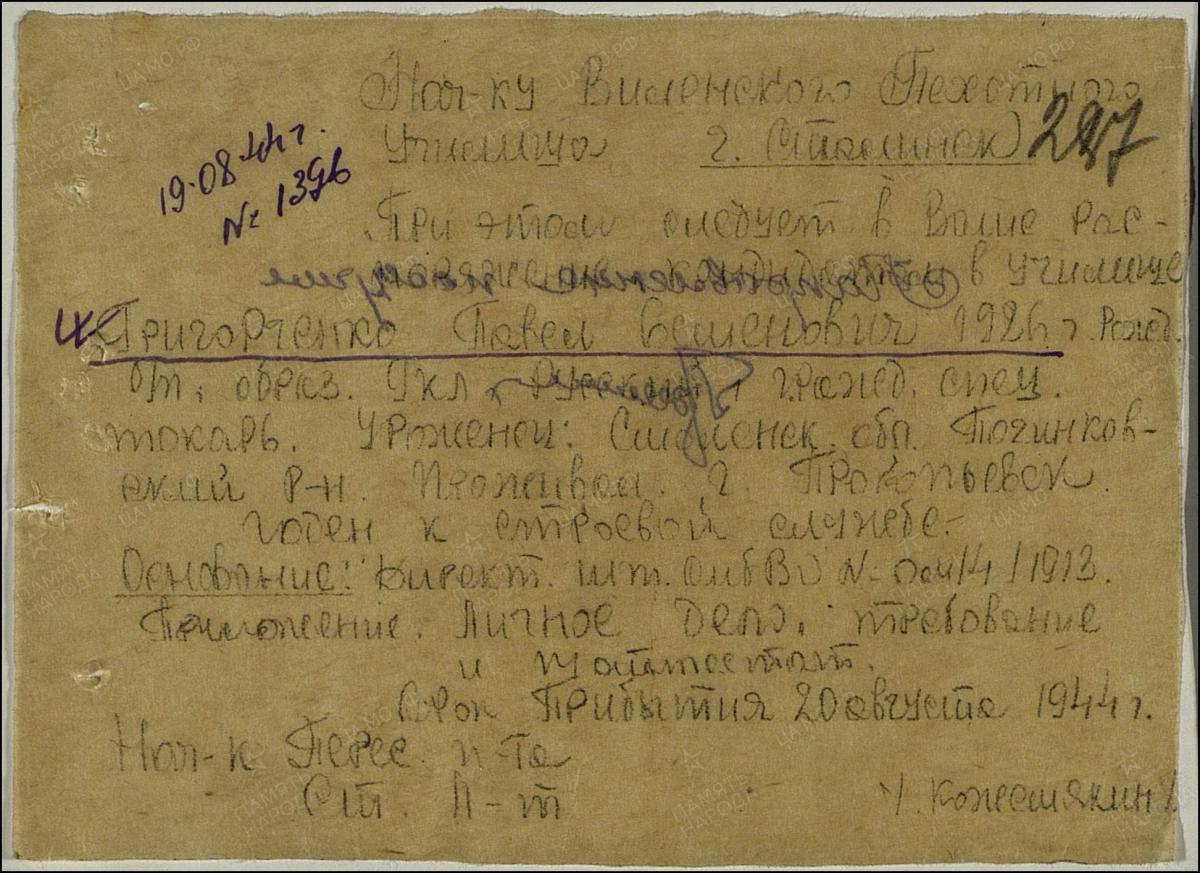 Нач-ку Виленского Пехотного
Училища г. Сталинск
297
19.08.44 г.
№ 1396
При этом следует в Ваше рас-
поряжение кандидатом в Училище
4. Григорченко Павел Семенович 1926 г. рожд.
образ. 4 кл., русский, гражд. спец.
токарь. Уроженец: Смоленск. обл. Починков-
ский р-н. Проживал. г. Прокопьевск.
Годен к строевой службе.
Основание: Директ. шт. СибВО №
Приложение. Личное дело, требование
и
Срок Прибытия 20 августа 1944 г.
Нач-к Перес. п-та
Ст. Л-т
/ Кожемякин /